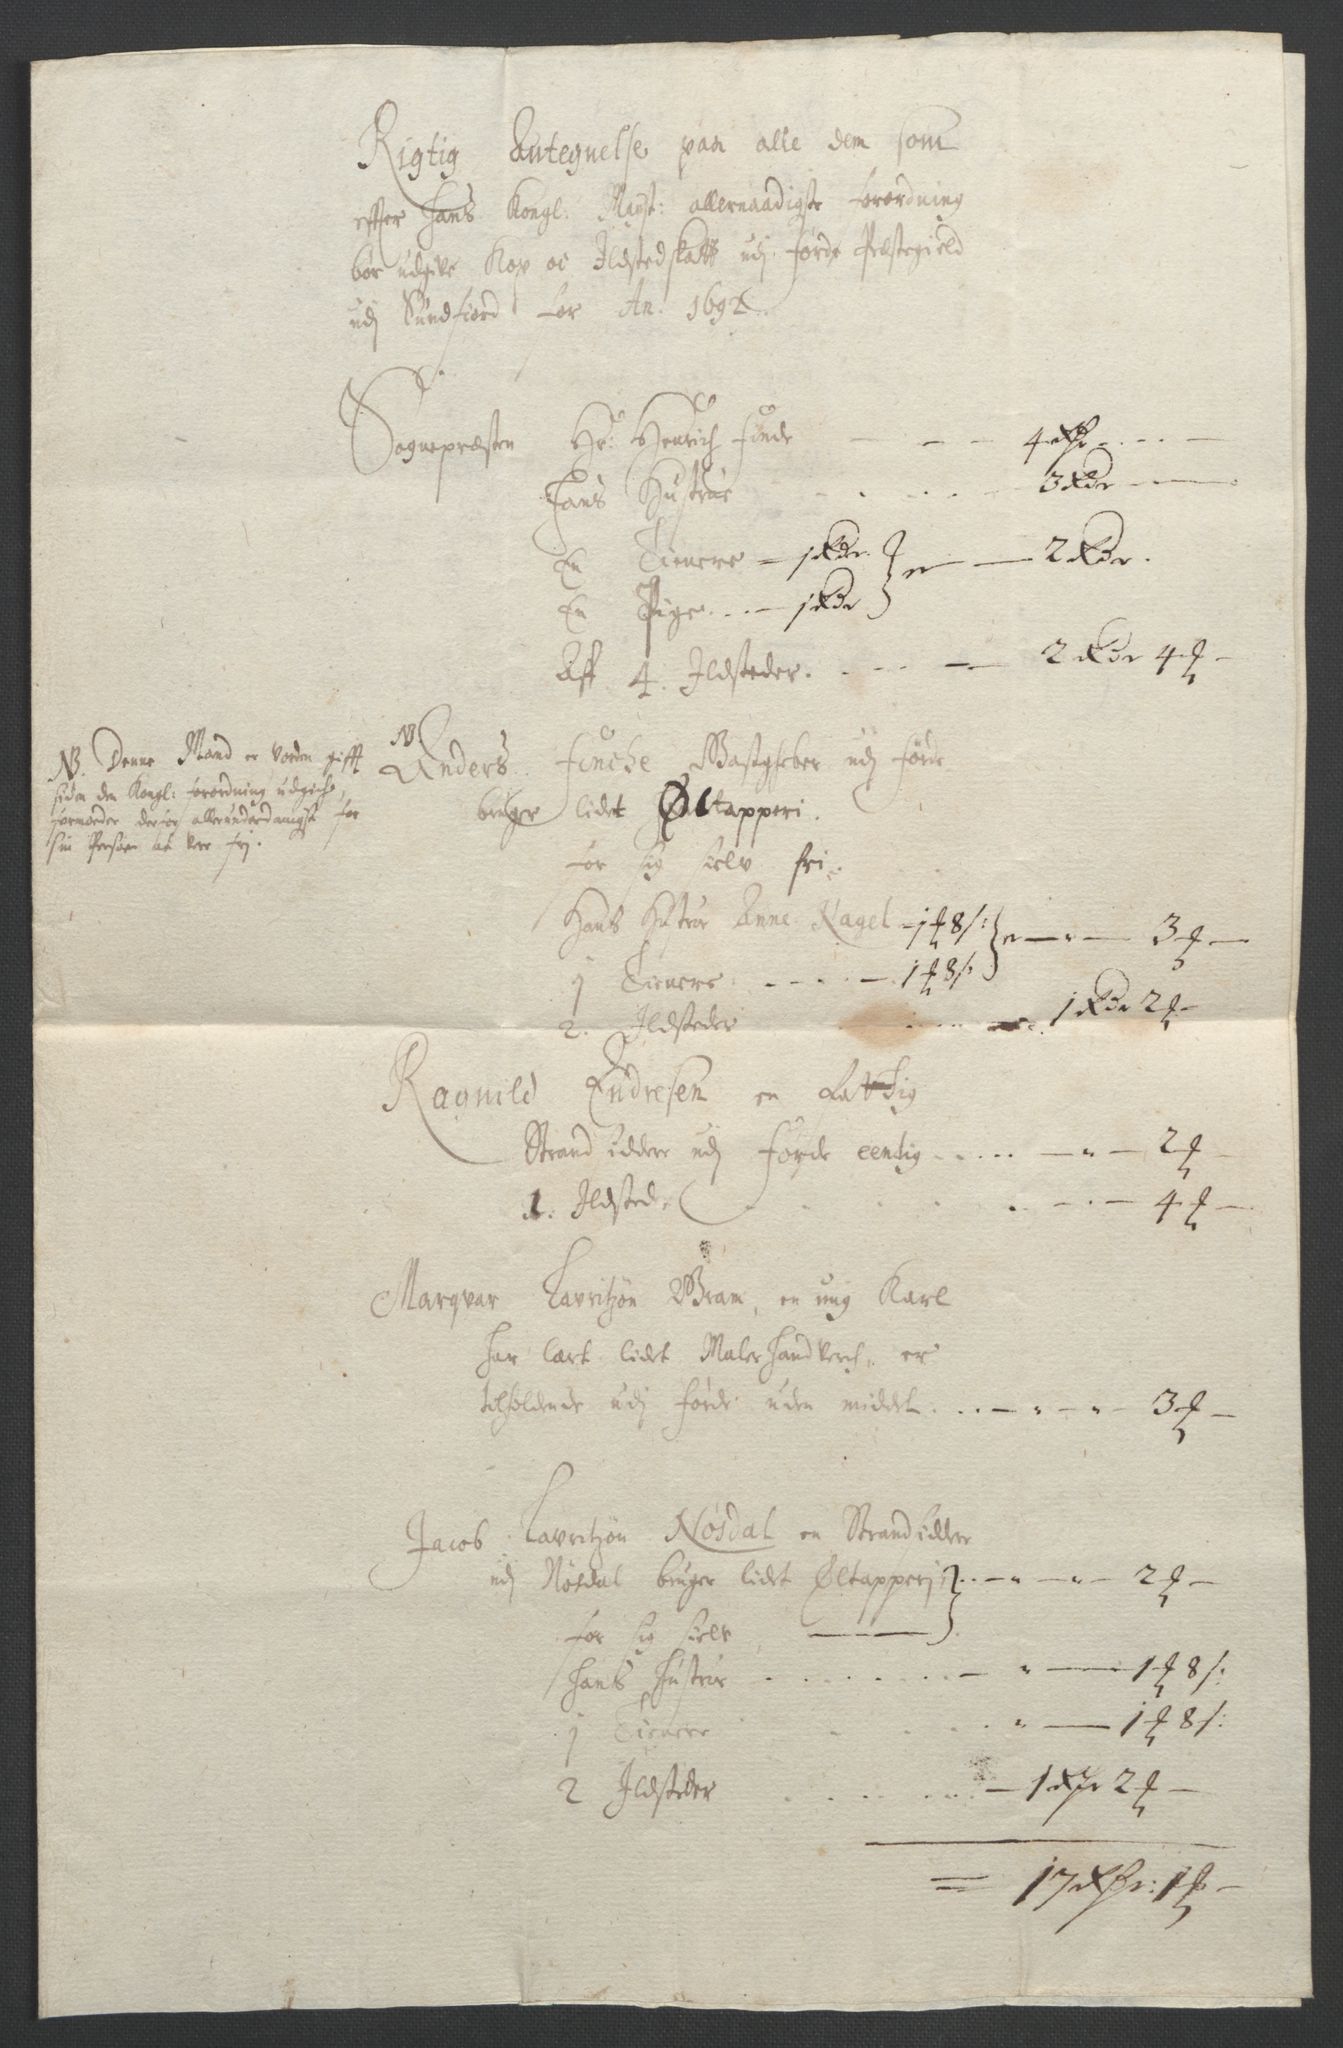 Rigtig Antegnelse paa alle dem som
effter Hans Kongl: Mayst: allernaadigste forordning
bør udgive Kop oc Ildstedskatt udj Førde Præstegield
udj Sundfiord for An. 1692.
Sognepræsten Hr: Henrich Finde — 4 Rdr —
Hans Hustrue — 3 Rdr —
En Tienere — 1 Rdr. } er — 2 Rdr.
En Pige — 1 Rdr
Aff 4. Ildsteder. — 2 Rdr 4 ℔ —
NB. Denne Mand er vorden gifft
siden den Kongl: forordning udgich,
formoeder derfor allerunderdanigst for
sin Person at vere frj.
NB.
Anders Finche Gastgifver udj Førde
bruger lidet Øltapperi.
for sig sielv fri.
Hans Hustrue Anne Nagel — 1 ℔ 8 s: } er — 3 ℔ —
1 Tienere — 1 ℔ 8 s:
2. Ildsteder — 1 Rdr 2 ℔ —
Ragnild Endresen en Fattig
Strandsiddere udj Førde eenlig — 2 ℔ —
1. Ildsted. — 4 ℔ —
Marqvar Lavritzøn Bram, en ung Karl
har lært lidet Maler Handverch, er
tilholdende udj Førde uden middel — 3 ℔ —
Jacob Lavritzøn Nøsdal en Strandsiddere
udj Nøsdal bruger lidet Øltapperj } — 2 ℔ —
for sig sielv
Hans Hustrue — 1 ℔ 8 s:
1 Tienere — 1 ℔ 8 s:
2 Ildsteder — 1 Rdr 2 ℔ —
= 17 Rdr: 1 ℔ —